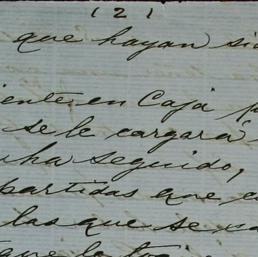 (2)
que hayan si
iente en Caja p
se le cargará
uha seguido,
partidas que c
las que se va